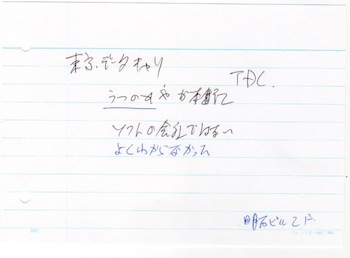 東京データキャリ
TDC.
うつのみや が
ソフトの会社ではない
よくわからなかった
明石ビル 2F